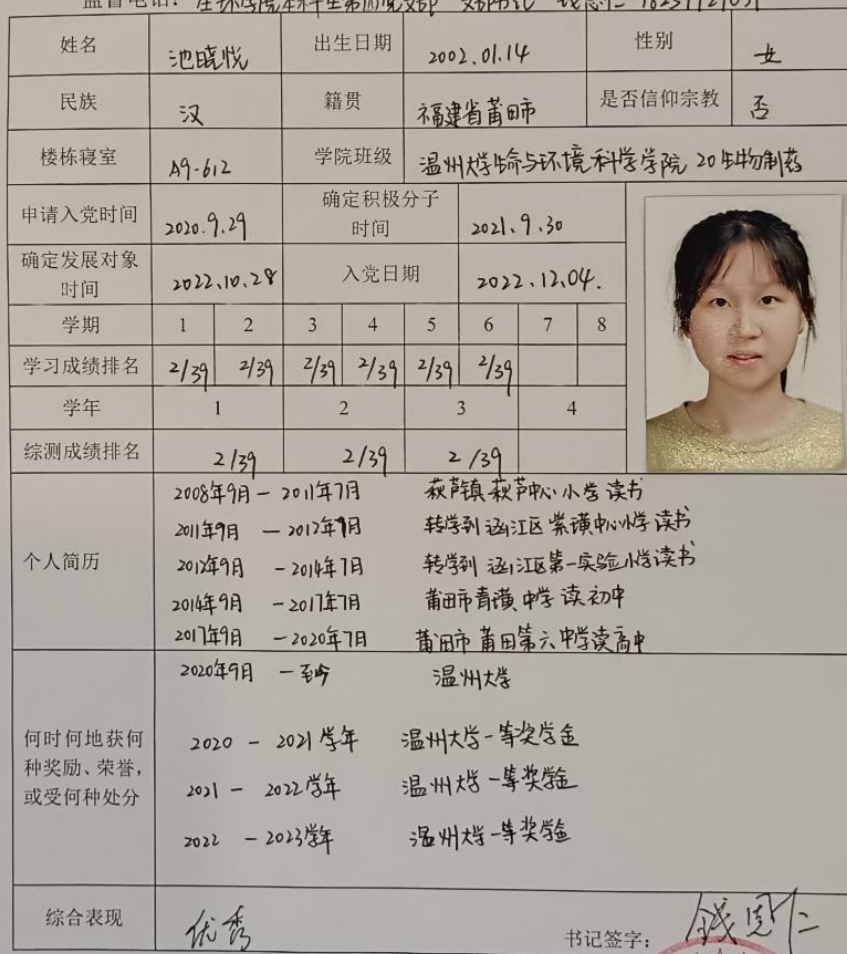 监督电话: 生环学院本科生第四党支部
姓名 池晓悦 出生日期 2002.01.14 性别 女
民族 汉 籍贯 福建省莆田市 是否信仰宗教 否
楼栋寝室 A9-612 学院班级 温州大学生命与环境科学学院 20生物制药
申请入党时间 2020.9.29 确定积极分子时间 2021.9.30
确定发展对象时间 2022.10.28 入党日期 2022.12.04.
学期 1 2 3 4 5 6 7 8
学习成绩排名 2/39 2/39 2/39 2/39 2/39 2/39
学年 1 2 3 4
综测成绩排名 2/39 2/39 2/39
个人简历
2008年9月-2011年7月 萩芦镇萩芦中心小学读书
2011年9月-2012年7月 转学到涵江区紫璜中心小学读书
2012年9月-2014年7月 转学到涵江区第一实验小学读书
2014年9月-2017年7月 莆田市青璜中学读初中
2017年9月-2020年7月 莆田市莆田第六中学读高中
2020年9月-至今 温州大学
何时何地获何种奖励、荣誉,或受何种处分
2020-2021学年 温州大学一等奖学金
2021-2022学年 温州大学一等奖学金
2022-2023学年 温州大学一等奖学金
综合表现 优秀 书记签字: 钱恩仁